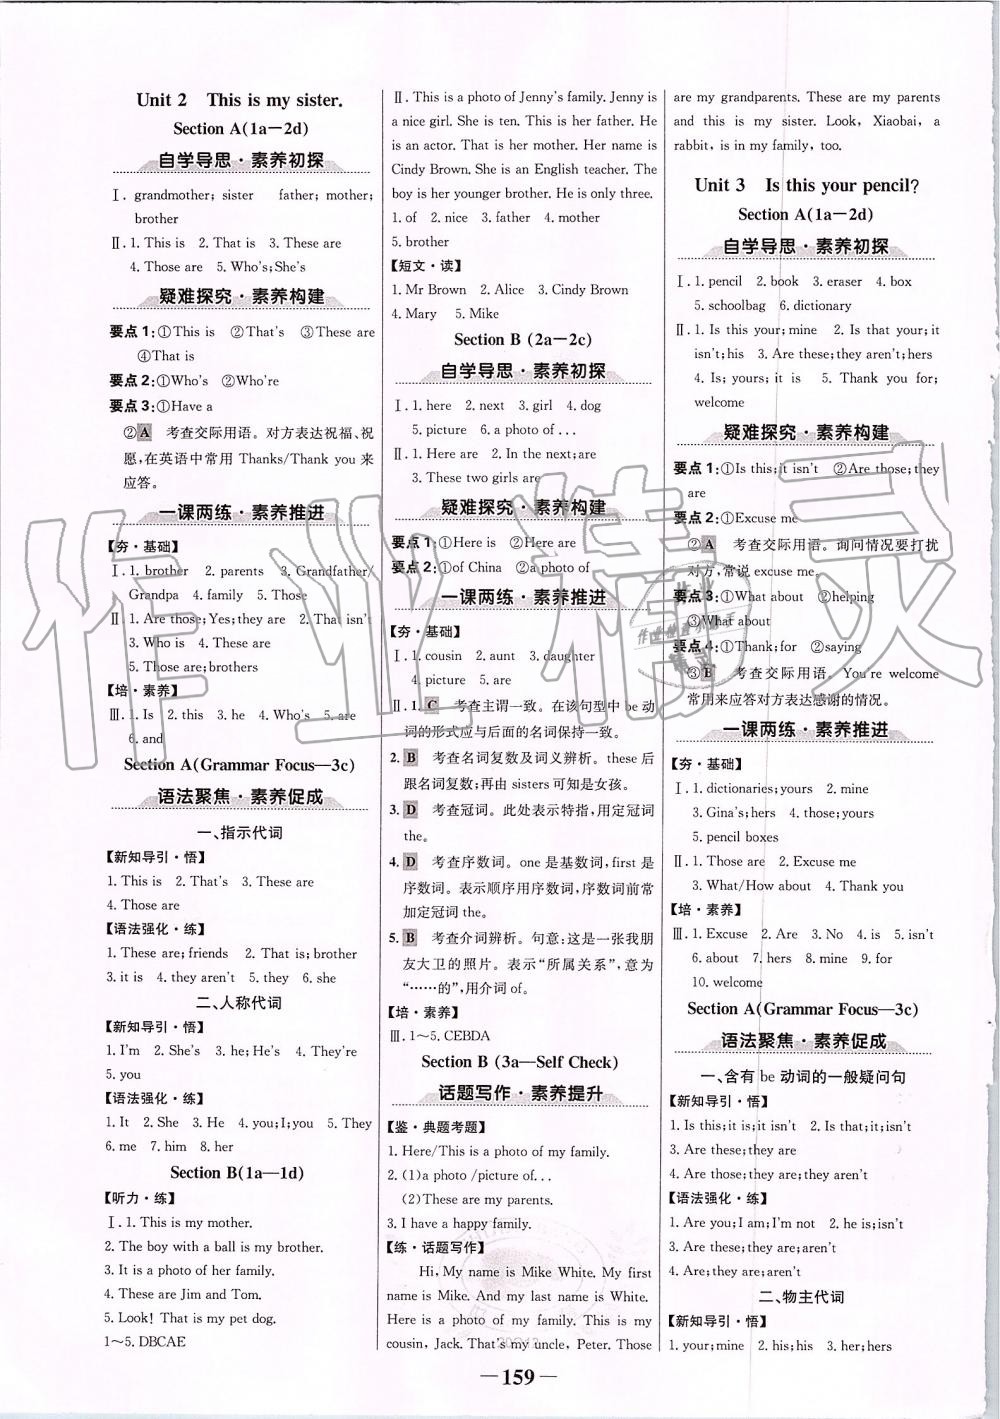 Unit 2 This is my sister.
Section A(1a—2d)
自学导思·素养初探
Ⅰ. grandmother; sister father; mother;
brother
Ⅱ. 1. This is 2. That is 3. These are
4. Those are 5. Who's;She's
疑难探究·素养构建
要点1:①This is ②That's ③These are
④That is
要点2:①Who's ②Who're
要点3:①Have a
②A 考查交际用语。对方表达祝福、祝
愿,在英语中常用 Thanks/Thank you来
应答。
一课两练·素养推进
【夯·基础】
Ⅰ. 1. brother 2. parents 3. Grandfather/
Grandpa 4. family 5. Those
Ⅱ. 1. Are those;Yes;they are 2. That isn't
3. Who is 4. These are
5. Those are;brothers
【培·素养】
Ⅲ. 1. Is 2. this 3. he 4. Who's 5. are
6. and
Section A(Grammar Focus—3c)
语法聚焦·素养促成
一、指示代词
【新知导引·悟】
1. This is 2. That's 3. These are
4. Those are
【语法强化·练】
1. These are;friends 2. That is;brother
3. it is 4. they aren't 5. they 6. she
二、人称代词
【新知导引·悟】
1. I'm 2. She's 3. he;He's 4. They're
5. you
【语法强化·练】
1. It 2. She 3. He 4. you;I;you 5. They
6. me 7. him 8. her
Section B(1a—1d)
【听力·练】
Ⅰ. 1. This is my mother.
2. The boy with a ball is my brother.
3. It is a photo of her family.
4. These are Jim and Tom.
5. Look! That is my pet dog.
1~5. DBCAE
Ⅱ. This is a photo of Jenny's family. Jenny is
a nice girl. She is ten. This is her father. He
is an actor. That is her mother. Her name is
Cindy Brown. She is an English teacher. The
boy is her younger brother. He is only three.
1. of 2. nice 3. father 4. mother
5. brother
【短文·读】
1. Mr Brown 2. Alice 3. Cindy Brown
4. Mary 5. Mike
Section B (2a—2c)
自学导思·素养初探
Ⅰ. 1. here 2. next 3. girl 4. dog
5. picture 6. a photo of . . .
Ⅱ. 1. Here are 2. In the next;are
3. These two girls are
疑难探究·素养构建
要点1:①Here is ②Here are
要点2:①of China ②a photo of
一课两练·素养推进
【夯·基础】
Ⅰ. 1. cousin 2. aunt 3. daughter
4. picture 5. are
Ⅱ. 1. C 考查主谓一致。在该句型中 be 动
词的形式应与后面的名词保持一致。
2. B 考查名词复数及词义辨析。these后
跟名词复数;再由 sisters 可知是女孩。
3. D 考查冠词。此处表示特指,用定冠词
the。
4. D 考查序数词。one 是基数词,first 是
序数词。表示顺序用序数词,序数词前常
加定冠词 the。
5. B 考查介词辨析。句意:这是一张我朋
友大卫的照片。表示“所属关系”,意为
“……的”,用介词 of。
【培·素养】
Ⅲ. 1~5. CEBDA
Section B (3a—Self Check)
话题写作·素养提升
【鉴·典题考题】
1. Here/This is a photo of my family.
2. (1)a photo /picture of. . .
(2)These are my parents.
3. I have a happy family.
【练·话题写作】
Hi, My name is Mike White. My first
name is Mike. And my last name is White.
Here is a photo of my family. This is my
cousin, Jack. That's my uncle, Peter. Those
are my grandparents. These are my parents
and this is my sister. Look, Xiaobai, a
rabbit, is in my family, too.
Unit 3 Is this your pencil?
Section A(1a—2d)
自学导思·素养初探
Ⅰ. 1. pencil 2. book 3. eraser 4. box
5. schoolbag 6. dictionary
Ⅱ. 1. Is this your;mine 2. Is that your;it
isn't;his 3. Are these;they aren't;hers
4. Is; yours; it is 5. Thank you for;
welcome
疑难探究·素养构建
要点1:①Is this;it isn't ②Are those;they
are
要点2:①Excuse me
②A 考查交际用语。询问情况要打扰
对方,常说 excuse me。
要点3:①What about ②helping
③What about
要点4:①Thank;for ②saying
③B 考查交际用语。You're welcome
常用来应答对方表达感谢的情况。
一课两练·素养推进
【夯·基础】
Ⅰ. 1. dictionaries;yours 2. mine
3. Gina's;hers 4. those;yours
5. pencil boxes
Ⅱ. 1. Those are 2. Excuse me
3. What/How about 4. Thank you
【培·素养】
Ⅲ. 1. Excuse 2. Are 3. No 4. is 5. isn't
6. about 7. hers 8. mine 9. for
10. welcome
Section A(Grammar Focus—3c)
语法聚焦·素养促成
一、含有 be 动词的一般疑问句
【新知导引·悟】
1. Is this;it is;it isn't 2. Is that;it;isn't
3. Are these;they are
4. Are those;they are;they aren't
【语法强化·练】
1. Are you;I am;I'm not 2. he is;isn't
3. Are these;they are;aren't
4. Are;they are;they aren't
二、物主代词
【新知导引·悟】
1. your;mine 2. his;his 3. her;hers
— 159 —
作业精灵